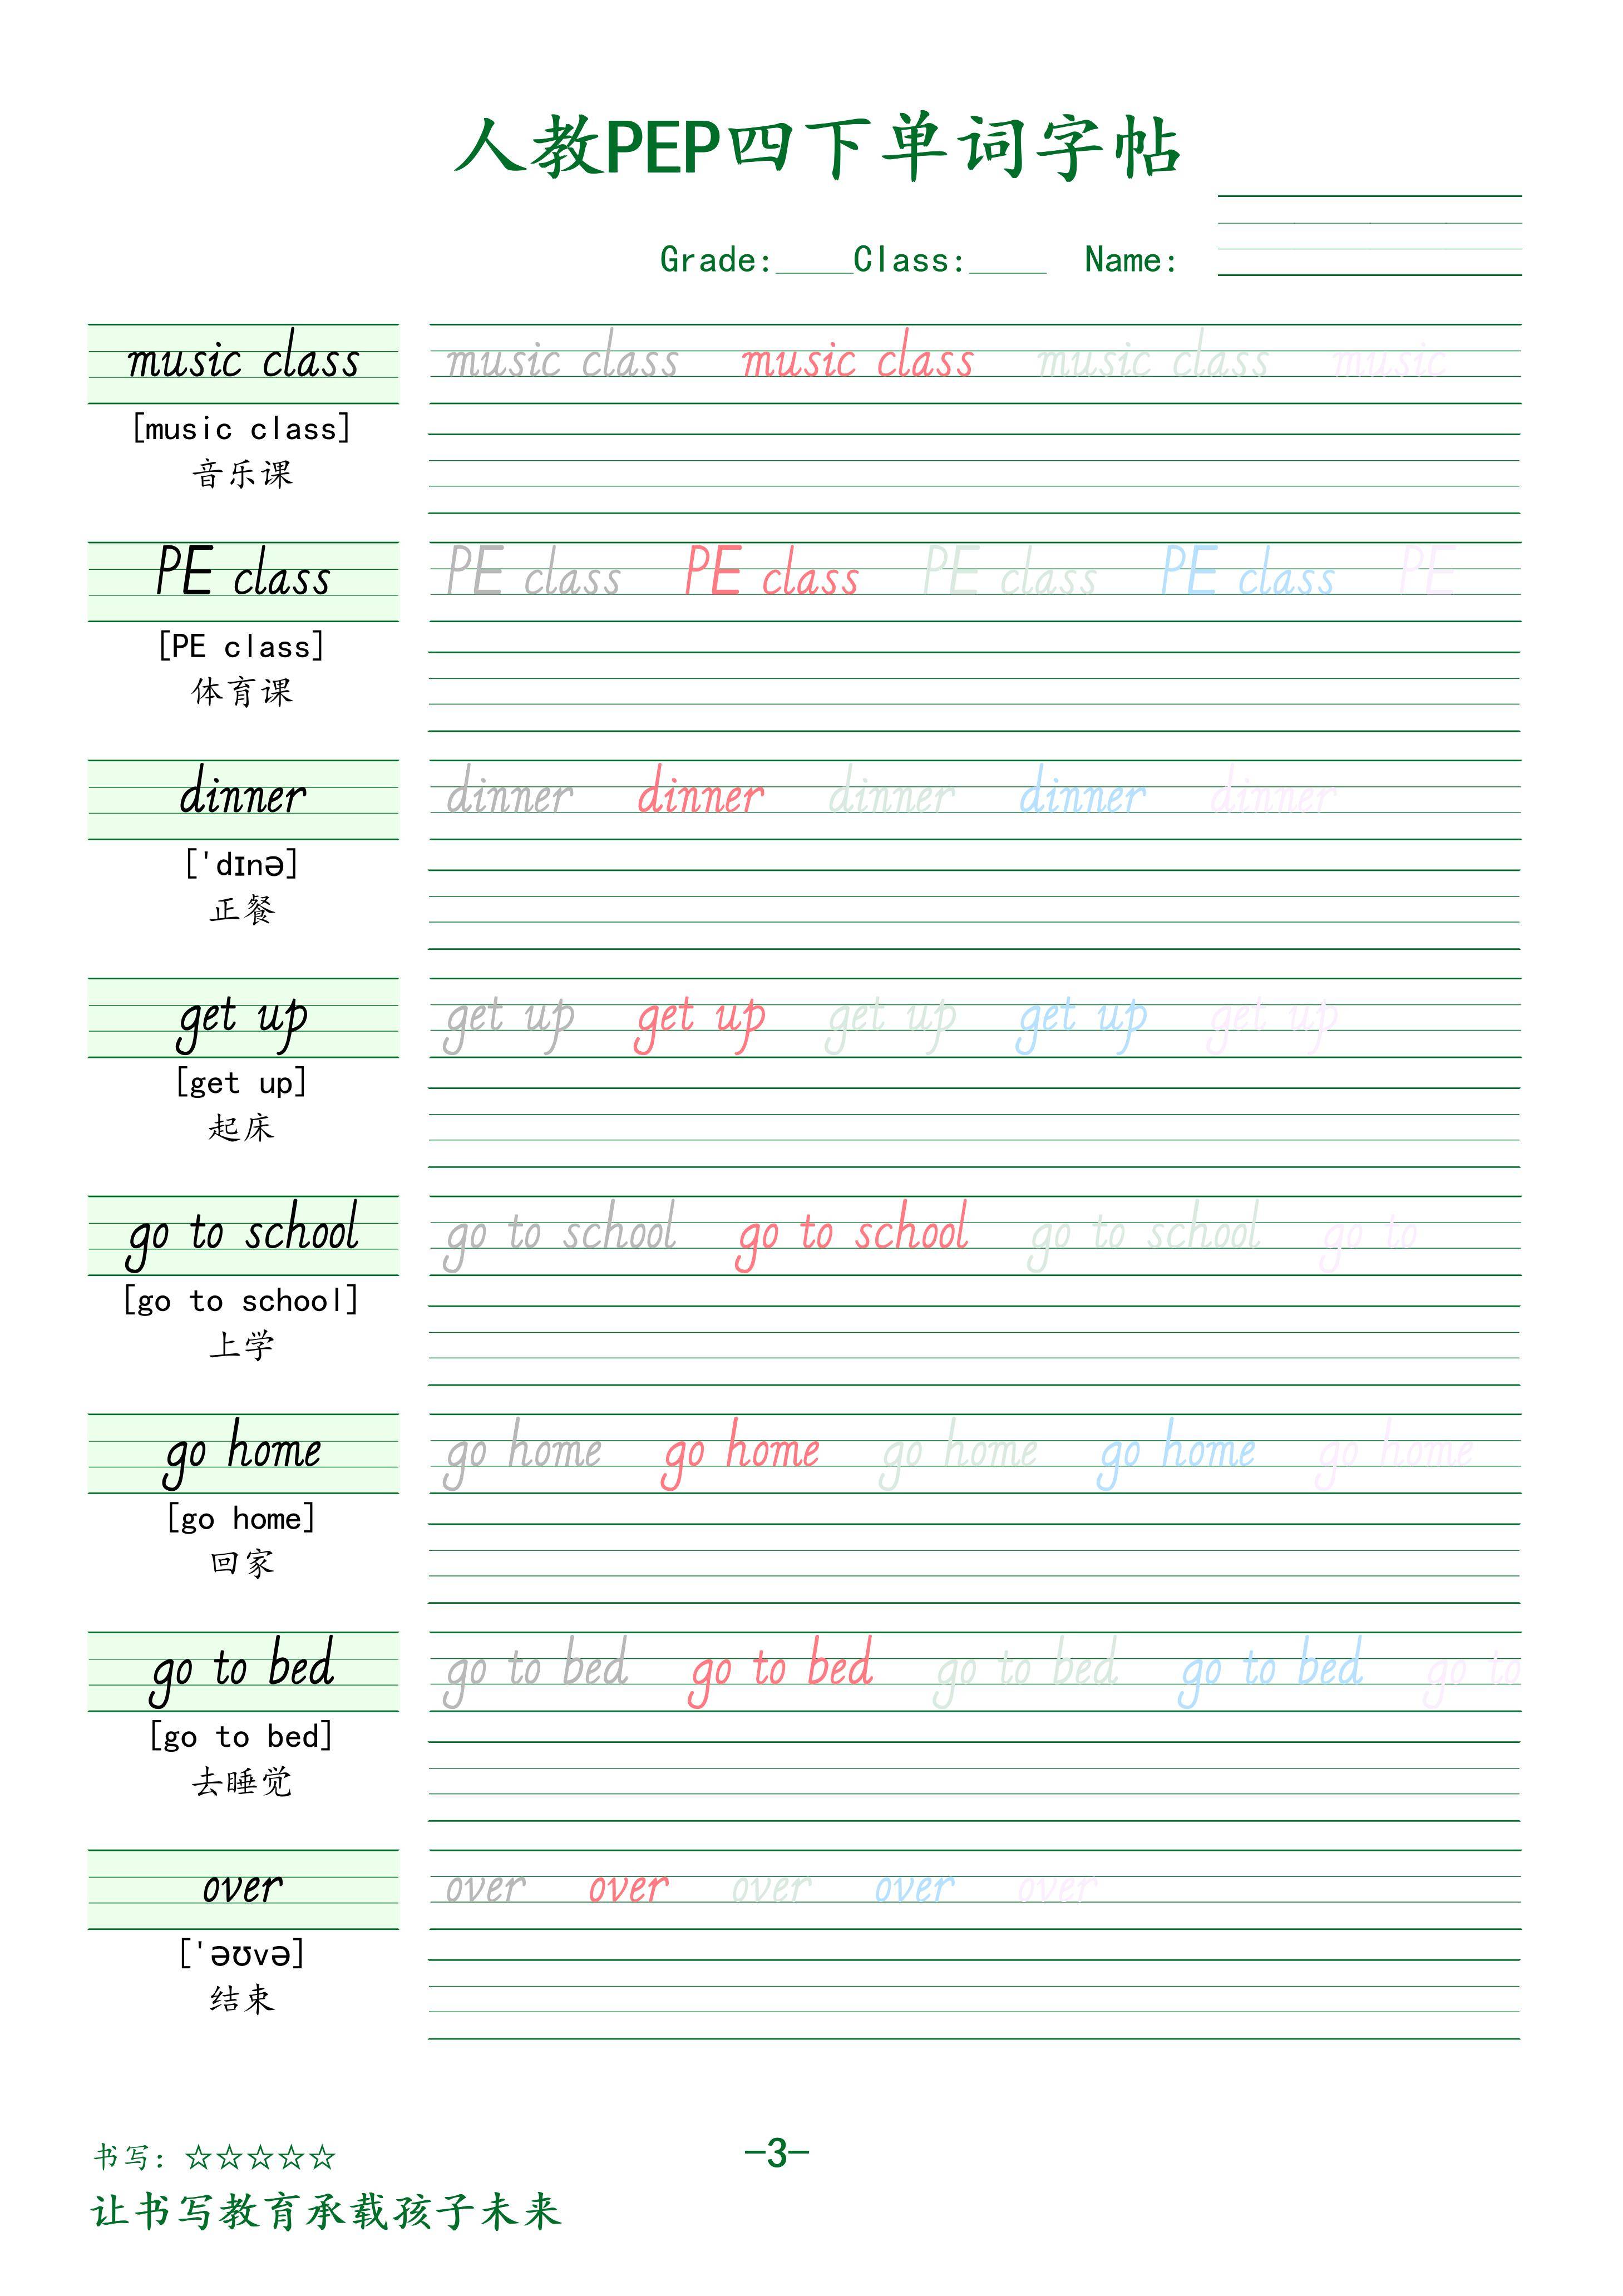 人教PEP四下单词字帖
Grade:____Class:____ Name:
music class music class music class music class music
[music class]
音乐课
PE class PE class PE class PE class PE class PE
[PE class]
体育课
dinner dinner dinner dinner dinner dinner
['dɪnə]
正餐
get up get up get up get up get up get up
[get up]
起床
go to school go to school go to school go to school go to
[go to school]
上学
go home go home go home go home go home go home
[go home]
回家
go to bed go to bed go to bed go to bed go to bed go to
[go to bed]
去睡觉
over over over over over over
['əʊvə]
结束
书写：☆☆☆☆☆
-3-
让书写教育承载孩子未来